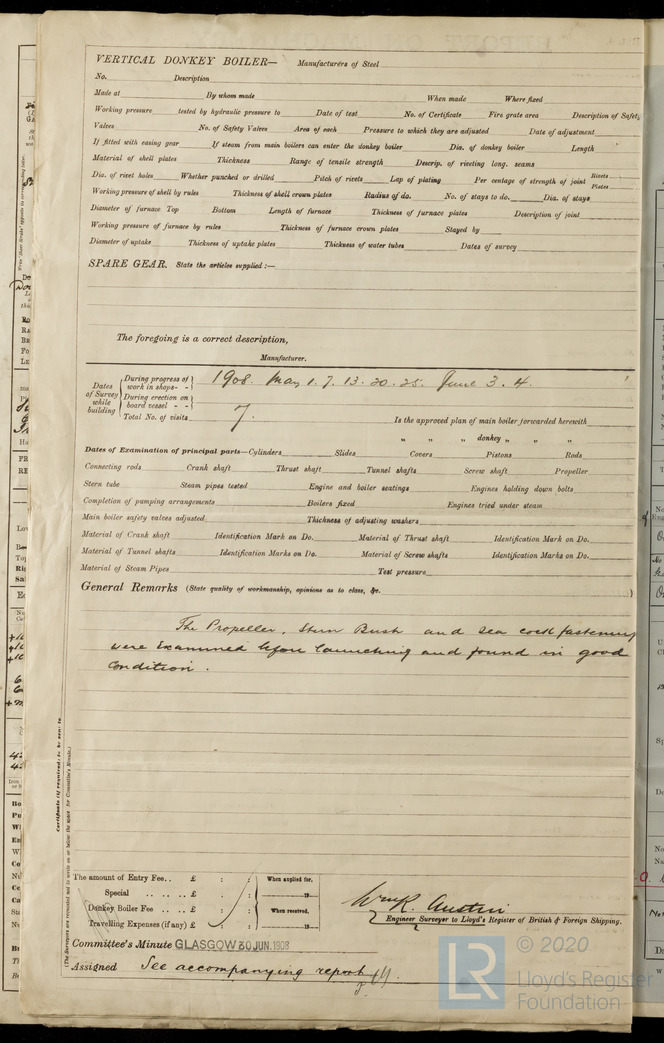 VERTICAL DONKEY BOILER— Manufacturers of Steel
No. Description
Made at By whom made When made Where fixed
Working pressure tested by hydraulic pressure to Date of test No. of Certificate Fire grate area Description of Safety
Valves No. of Safety Valves Area of each Pressure to which they are adjusted Date of adjustment
If fitted with easing gear If steam from main boilers can enter the donkey boiler Dia. of donkey boiler Length
Material of shell plates Thickness Range of tensile strength Descrip. of riveting long. seams
Dia. of rivet holes Whether punched or drilled Pitch of rivets Lap of plating Per centage of strength of joint Rivets Plates
Working pressure of shell by rules Thickness of shell crown plates Radius of do. No. of stays to do. Dia. of stays
Diameter of furnace Top Bottom Length of furnace Thickness of furnace plates Description of joint
Working pressure of furnace by rules Thickness of furnace crown plates Stayed by
Diameter of uptake Thickness of uptake plates Thickness of water tubes Dates of survey
SPARE GEAR. State the articles supplied:—
The foregoing is a correct description,
Manufacturer.
Dates of Survey while building
During progress of work in shops - - 1908. May 1. 7. 13. 20. 25. June 3. 4.
During erection on board vessel - -
Total No. of visits 7. Is the approved plan of main boiler forwarded herewith
" " " donkey " " "
Dates of Examination of principal parts—Cylinders Slides Covers Pistons Rods
Connecting rods Crank shaft Thrust shaft Tunnel shafts Screw shaft Propeller
Stern tube Steam pipes tested Engine and boiler seatings Engines holding down bolts
Completion of pumping arrangements Boilers fixed Engines tried under steam
Main boiler safety valves adjusted Thickness of adjusting washers
Material of Crank shaft Identification Mark on Do. Material of Thrust shaft Identification Mark on Do.
Material of Tunnel shafts Identification Marks on Do. Material of Screw shafts Identification Marks on Do.
Material of Steam Pipes Test pressure
General Remarks (State quality of workmanship, opinions as to class, &c. )
The Propeller, Stern Bush and sea cock fastenings
were examined before launching and found in good
condition.
Certificate (if required) to be sent to
(The Surveyors are requested not to write on or below the space for Committee's Minute.)
The amount of Entry Fee.. £ : : When applied for,
Special .. .. .. £ : : 19
Donkey Boiler Fee .. .. .. £ : : When received,
Travelling Expenses (if any) £ : : 19
Wm R. Austin
Engineer Surveyor to Lloyd's Register of British & Foreign Shipping.
Committee's Minute GLASGOW 30 JUN. 1908
Assigned See accompanying report
© 2020
LR Lloyd's Register
Foundation